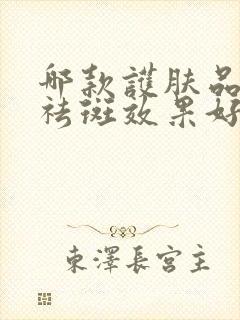 哪款護肤品
祛斑效果好
東澤長宮主